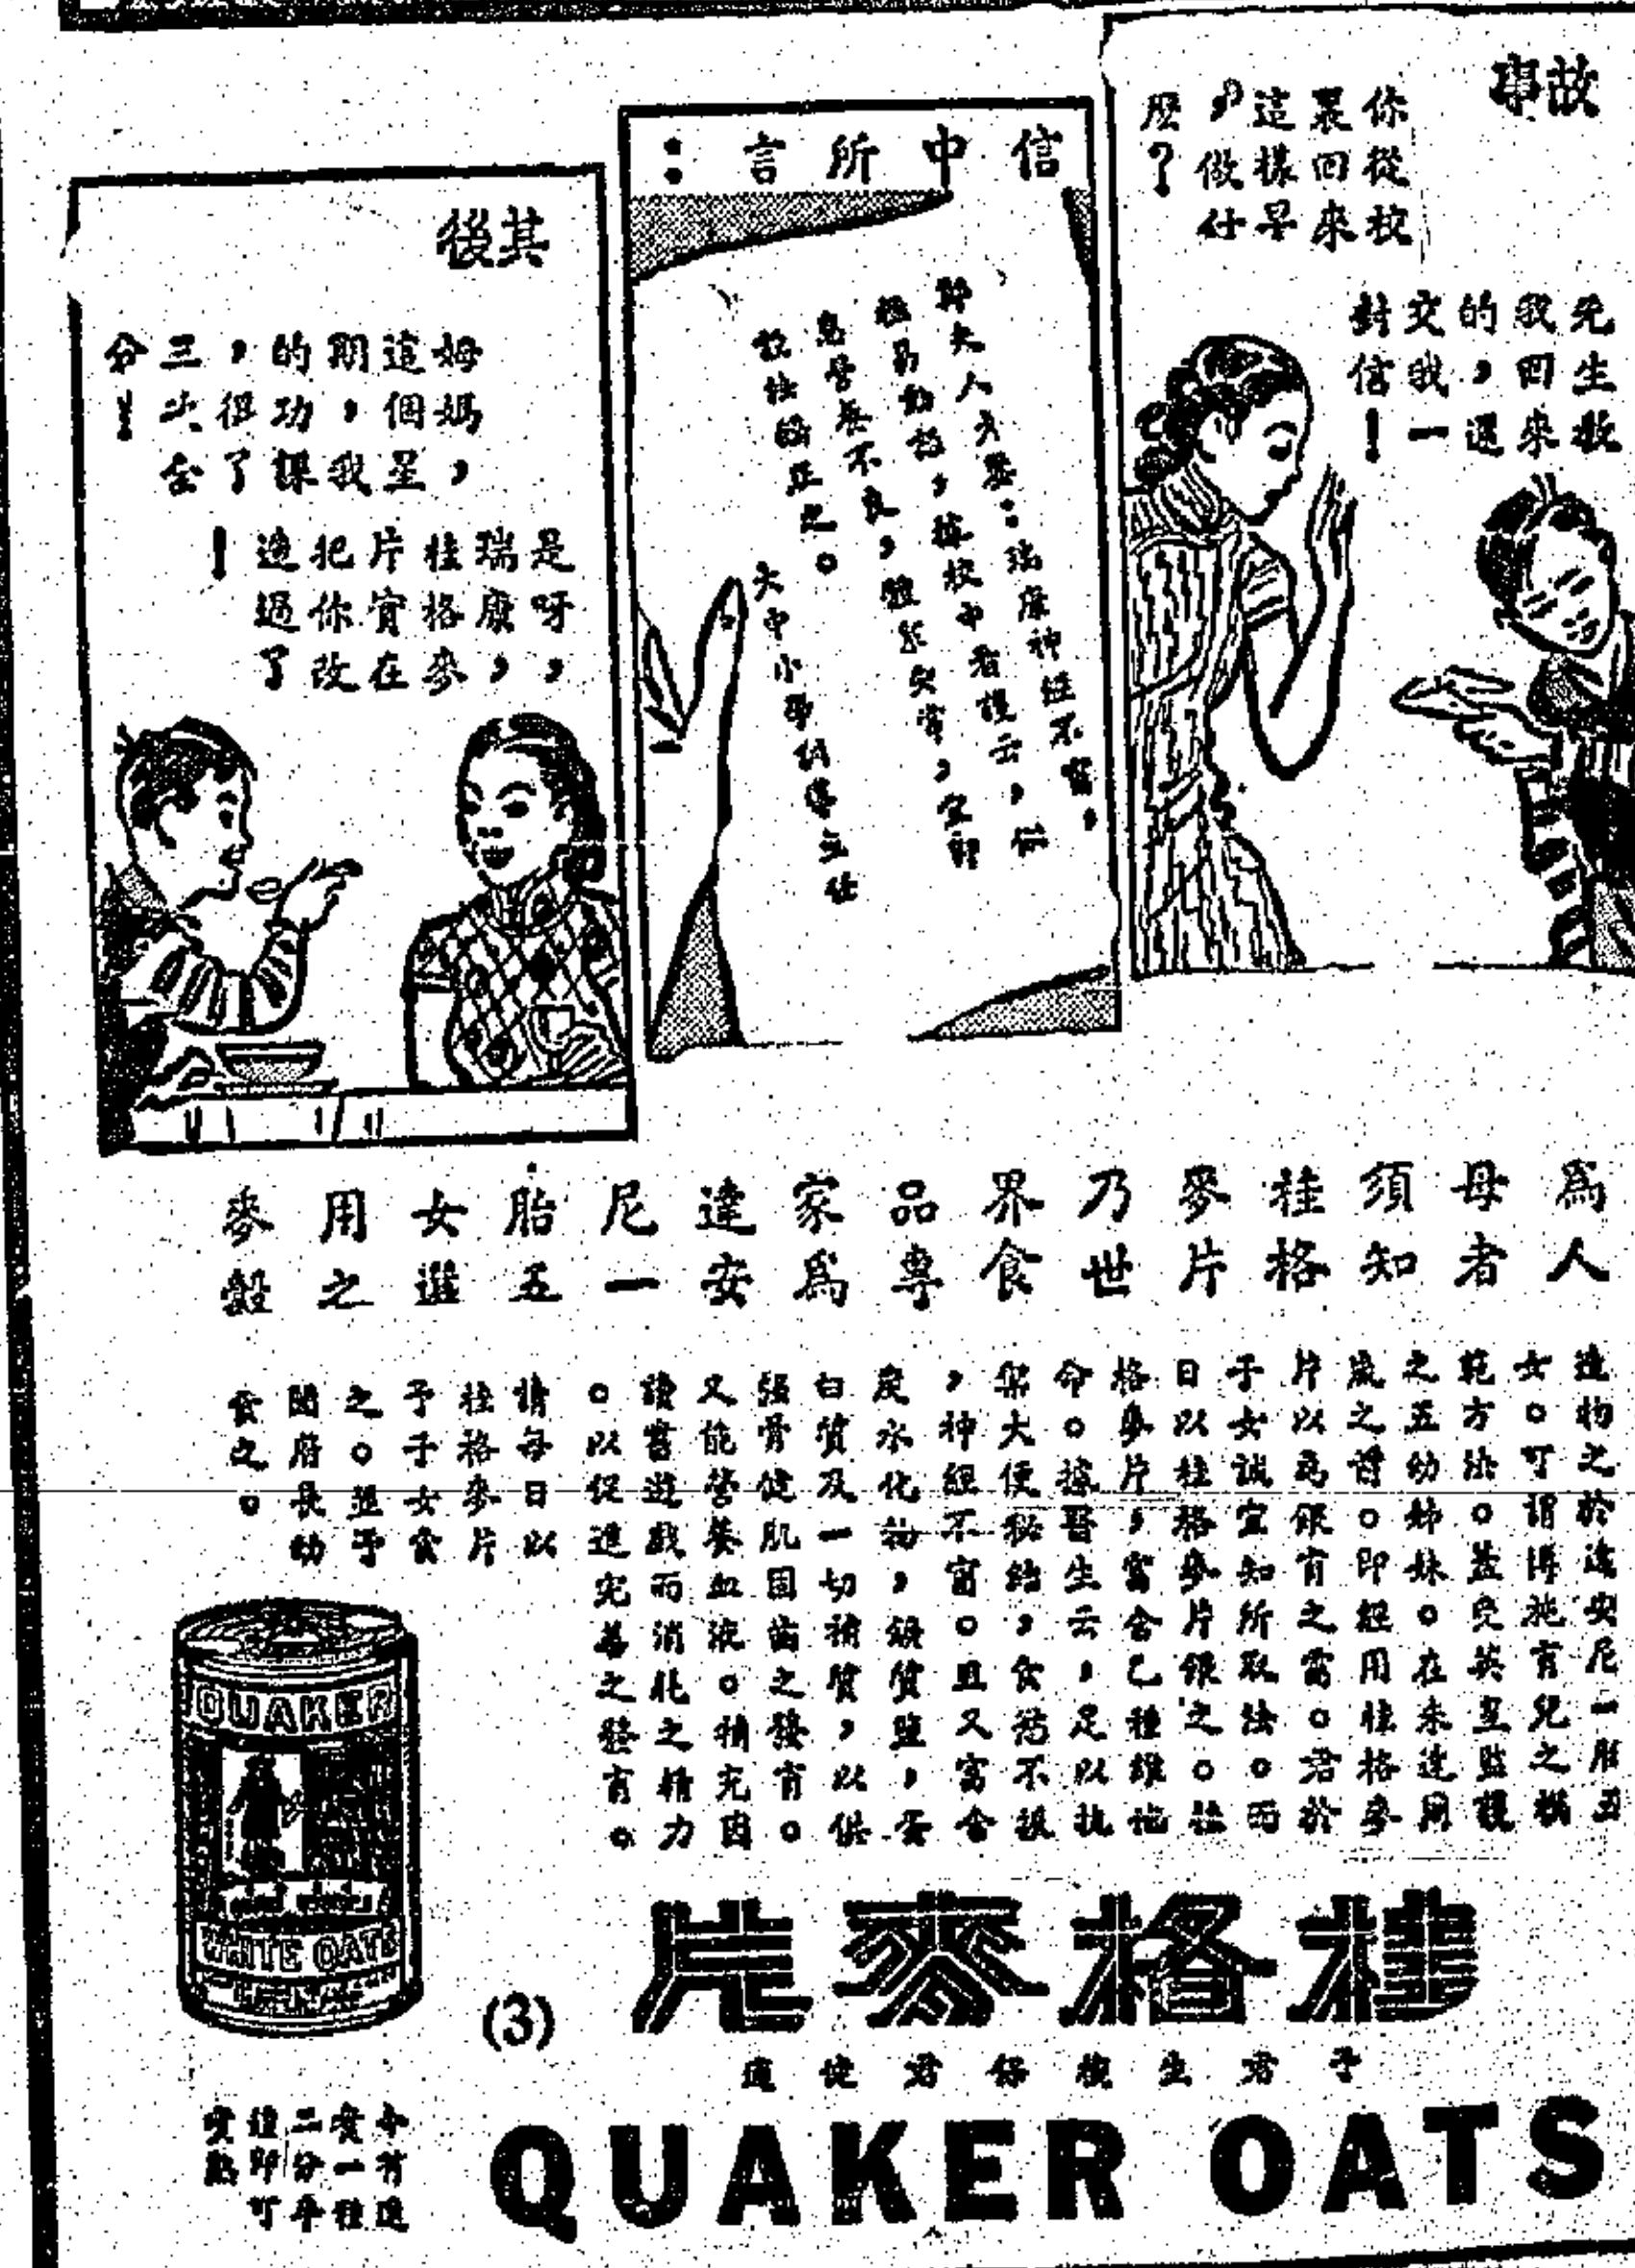 故事
你從校
裏回來
這樣早
，做什
麼？
先生教
我回來
的，還
交我一
封信！
信中所言：
鄭夫人大鑒：瑞康神經不寧，
極易動怒，據校中看護云，係
營養不良，體氣失常，宜即
設法矯正之。
大中小學
其後
姆媽，
這個星
期，我
的功課
，得了
三次全
分！
是呀，
瑞康，
桂格麥
片實在
把你改
過了
！
為人
母者
須知
桂格
麥片
乃世
界食
品專
家為
達安
尼一
胎五
女選
用之
麥穀
造物之於達安尼一胎五
女。可謂博施育兒之模
範方法。蓋受英皇監護
之五幼姊妹。在未達周
歲之前。即經用桂格麥
片以為保育之需。君於
子女誠宜知所取法。而
日以桂格麥片保之。桂
格麥片，富含乙種維他
命。據醫生云，足以抗
禦大便秘結，食慾不振
，神經不寧。且又富含
炭水化物，鐵質鹽，蛋
白質及一切補質，以供
強骨健肌固齒之發育。
又能營養血液。補充因
讀書遊戲而消耗之精力
。以促進完善之發育。
請每日以
桂格麥片
予子女食
之。並予
闔府長幼
食之。
QUAKER
WHITE OATS
(3)
桂格麥片
QUAKER OATS
今有速
煮一種
二分半
鐘即可
煮熟